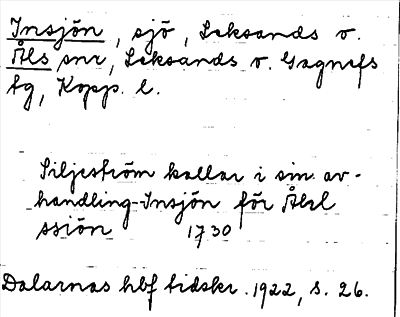 Insjön, sjö, Leksands o.
Åls snr, Leksands o. Gagnefs
tg, Kopp. l.
Siljeström kallar i sin av-
handling Insjön för Åhl
ssiön 1730
Dalarnas hbf tidskr. 1922, s. 26.